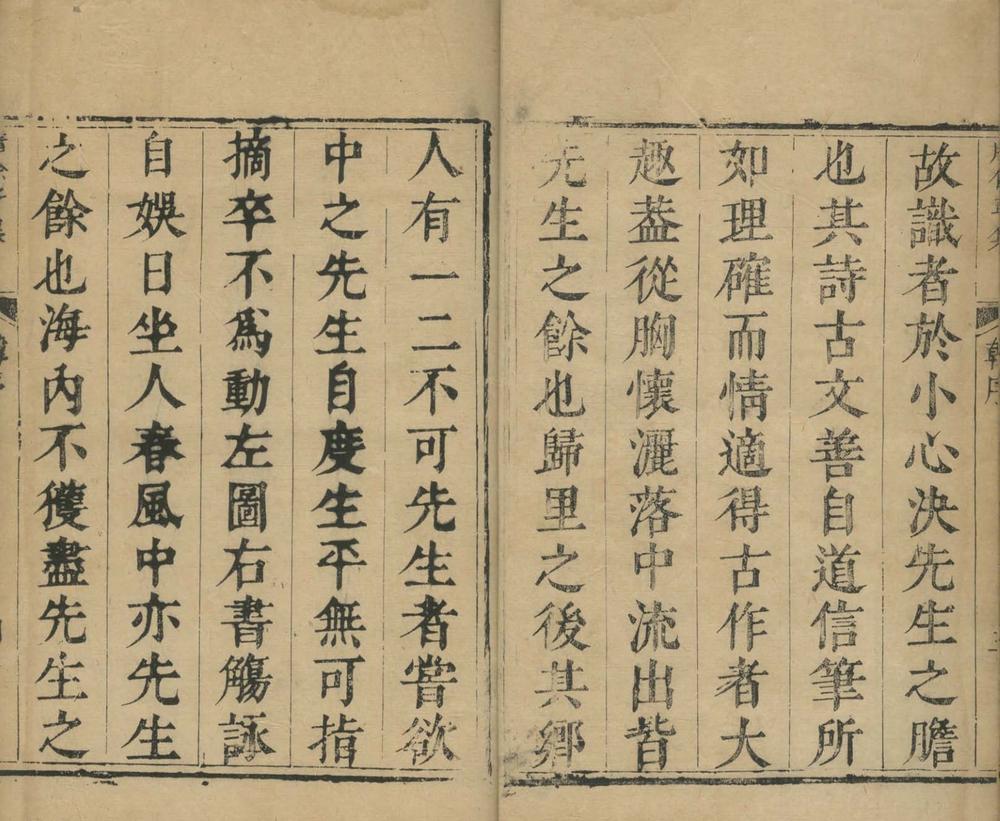 故識者於小心決先生之膽
也其詩古文善自道信筆所
如理確而情適得古作者大
趣葢從胸懷灑落中流出皆
先生之餘也歸里之後其鄉
人有一二不可先生者嘗欲
中之先生自度生平無可指
摘卒不爲動左圖右書觴詠
自娛日坐人春風中亦先生
之餘也海內不獲盡先生之